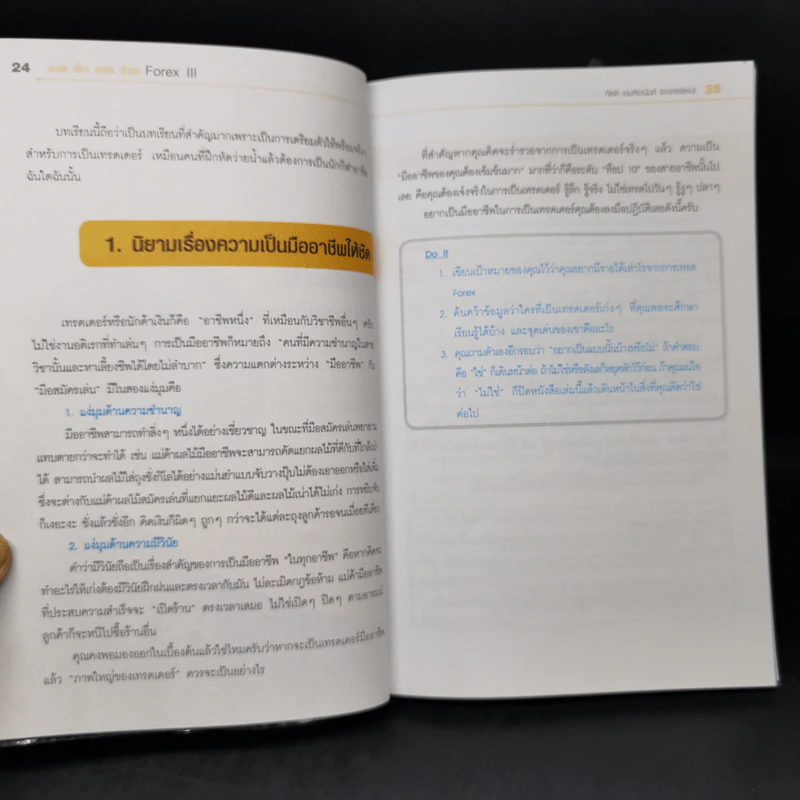 24
Forex III
บทเรียนนี้ถือว่าเป็นบทเรียนที่สำคัญมากเพราะเป็นการเตรียมตัวให้พร้อม
สำหรับการเป็นเทรดเดอร์ เหมือนคนที่ฝึกหัดว่ายน้ำแล้วต้องการเป็นนักกีฬาอาชีพ
ฉันใดฉันนั้น
1. นิยามเรื่องความเป็นมืออาชีพให้ชัด
เทรดเดอร์หรือนักค้าเงินก็คือ "อาชีพหนึ่ง" ที่เหมือนกับวิชาชีพอื่นๆ ครับ
ไม่ใช่งานอดิเรกที่ทำเล่นๆ การเป็นมืออาชีพก็หมายถึง "คนที่มีความชำนาญในสาย
วิชานั้นและหาเลี้ยงชีพได้โดยไม่ลำบาก" ซึ่งความแตกต่างระหว่าง "มืออาชีพ" กับ
"มือสมัครเล่น" มีในสองแง่มุมคือ
1. แง่มุมด้านความชำนาญ
มืออาชีพสามารถทำสิ่งๆ หนึ่งได้อย่างเชี่ยวชาญ ในขณะที่มือสมัครเล่นพยายาม
แทบตายกว่าจะทำได้ เช่น แม่ค้าผลไม้มืออาชีพจะสามารถคัดแยกผลไม้ที่ดีกับที่ใกล้เน่า
ได้ สามารถนำผลไม้ใส่ถุงชั่งกิโลได้อย่างแม่นยำแบบจับวางปุ๊บไม่ต้องเอาออกหรือใส่เพิ่ม
ซึ่งจะต่างกับแม่ค้าผลไม้สมัครเล่นที่แยกแยะผลไม้ดีและผลไม้เน่าได้ไม่เก่ง การหยิบจับ
ก็เงอะงะ ชั่งแล้วชั่งอีก คิดเงินก็ผิดๆ ถูกๆ กว่าจะได้แต่ละถุงลูกค้ารอจนเมื่อยทีเดียว
2. แง่มุมด้านความมีวินัย
คำว่ามีวินัยถือเป็นเรื่องสำคัญของการเป็นมืออาชีพ "ในทุกอาชีพ" คือหากคิดจะ
ทำอะไรให้เก่งต้องมีวินัยฝึกฝนและตรงเวลากับมัน ไม่ละเมิดกฎข้อห้าม แม่ค้ามืออาชีพ
ที่ประสบความสำเร็จจะ "เปิดร้าน" ตรงเวลาเสมอ ไม่ใช่เปิดๆ ปิดๆ ตามอารมณ์
ลูกค้าก็จะหนีไปซื้อร้านอื่น
คุณคงพอมองออกในเบื้องต้นแล้วใช่ไหมครับว่าหากจะเป็นเทรดเดอร์มืออาชีพ
แล้ว "ภาพใหญ่ของเทรดเดอร์" ควรจะเป็นอย่างไร
25
ที่สำคัญหากคุณคิดจะร่ำรวยจากการเป็นเทรดเดอร์จริงๆ แล้ว ความเป็น
"มืออาชีพของคุณต้องเข้มข้นมาก" มากที่ว่าก็คือระดับ "ท็อป 10" ของสายอาชีพนั้นไป
เลย คือคุณต้องเจ๋งจริงในการเป็นเทรดเดอร์ รู้ลึก รู้จริง ไม่ใช่เทรดไปวันๆ รู้งูๆ ปลาๆ
อยากเป็นมืออาชีพในการเป็นเทรดเดอร์คุณต้องลงมือปฏิบัติเลยดังนี้ครับ
Do It
1. เขียนเป้าหมายของคุณไว้ว่าคุณอยากมีรายได้เท่าไรจากการเทรด
Forex
2. ค้นคว้าข้อมูลว่าใครที่เป็นเทรดเดอร์เก่งๆ ที่คุณพอจะศึกษา
เรียนรู้ได้บ้าง และจุดเด่นของเขาคืออะไร
3. คุณถามตัวเองอีกรอบว่า "อยากเป็นแบบนั้นบ้างหรือไม่" ถ้าคำตอบ
คือ "ใช่" ก็เดินหน้าต่อ ถ้าไม่ใช่หรือลังเลให้หยุดพักไว้ก่อน ถ้าคุณแน่ใจ
ว่า "ไม่ใช่" ก็ปิดหนังสือเล่มนี้แล้วเดินหน้าในสิ่งที่คุณคิดว่าใช่
ต่อไป